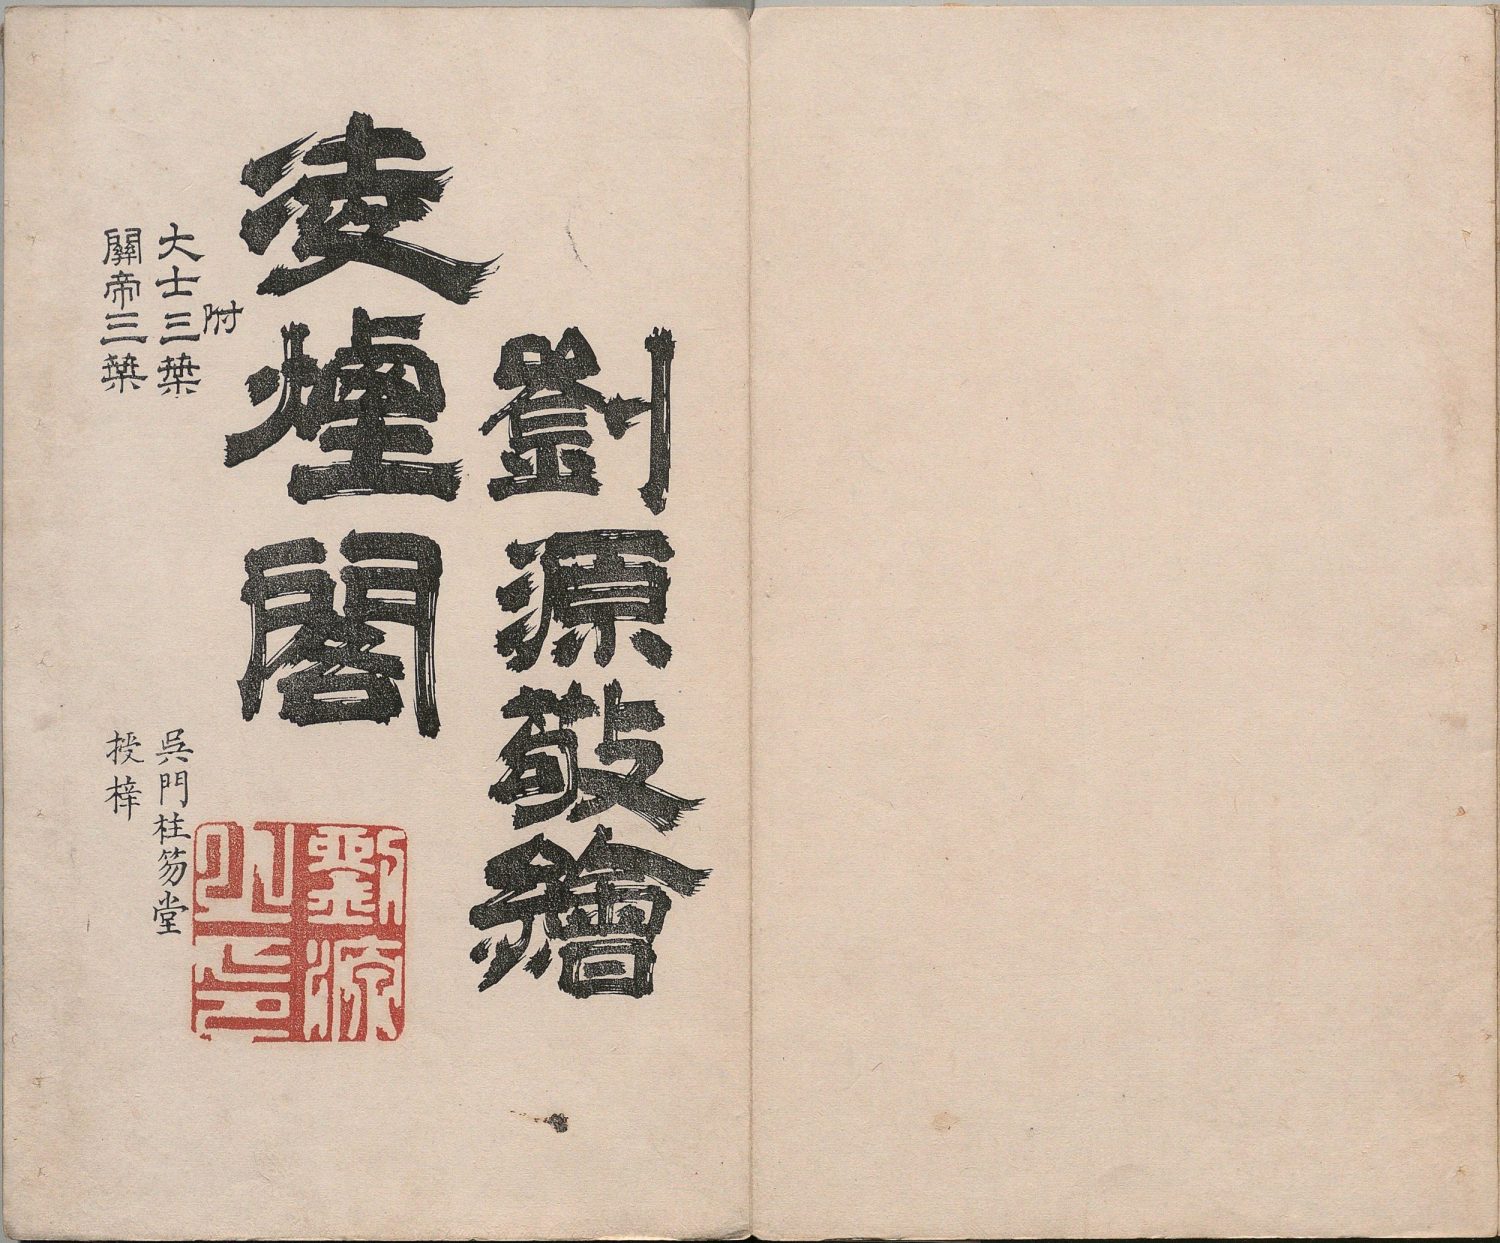 劉源敬繪
淩煙閣
附
大士三葉
關帝三葉
吳門柱笏堂
授梓
劉源之印